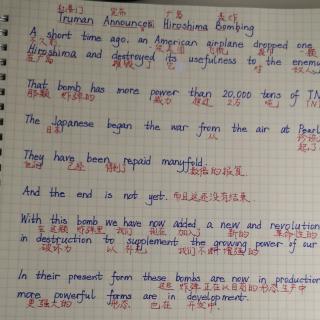 杜鲁门 宣布 广岛 轰炸
Truman Announces Hiroshima Bombing
A short time ago, an American airplane dropped one
Hiroshima and destroyed its usefulness to the enemy
That bomb has more power than 20,000 tons of TN
那颗 炸弹的 威力 超过 2万 吨
The Japanese began the war from the air at Pearl
日本 从
They have been repaid manyfold.
他们 已经 得到了 数倍的报复.
And the end is not yet. 而且这还没有结束.
With this bomb we have now added a new and revolution
在这颗 炸弹里 我们 现在 加入了 新的
in destruction to supplement the growing power of our
破坏力 以 补充 我们不断增强的
In their present form these bombs are now in production
这些 炸弹正在以目前的形态生产中
more powerful forms are in development.
更强大的 形态 也在 开发中.